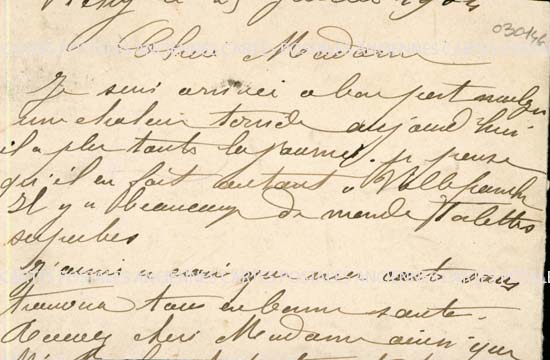 le 25 Juillet 1904
030146
Chere Madame
Je suis arrivé a bon port malgré
une chaleur torride aujourd'hui
il a plu toute la journée. je pense
qu'il en fait autant a Villefranche
Il y a beaucoup de monde Toilettes
superbes
J'aime a croire que mon mot vous
trouvera tous en bonne santé.
Recevez chere Madame ainsi que